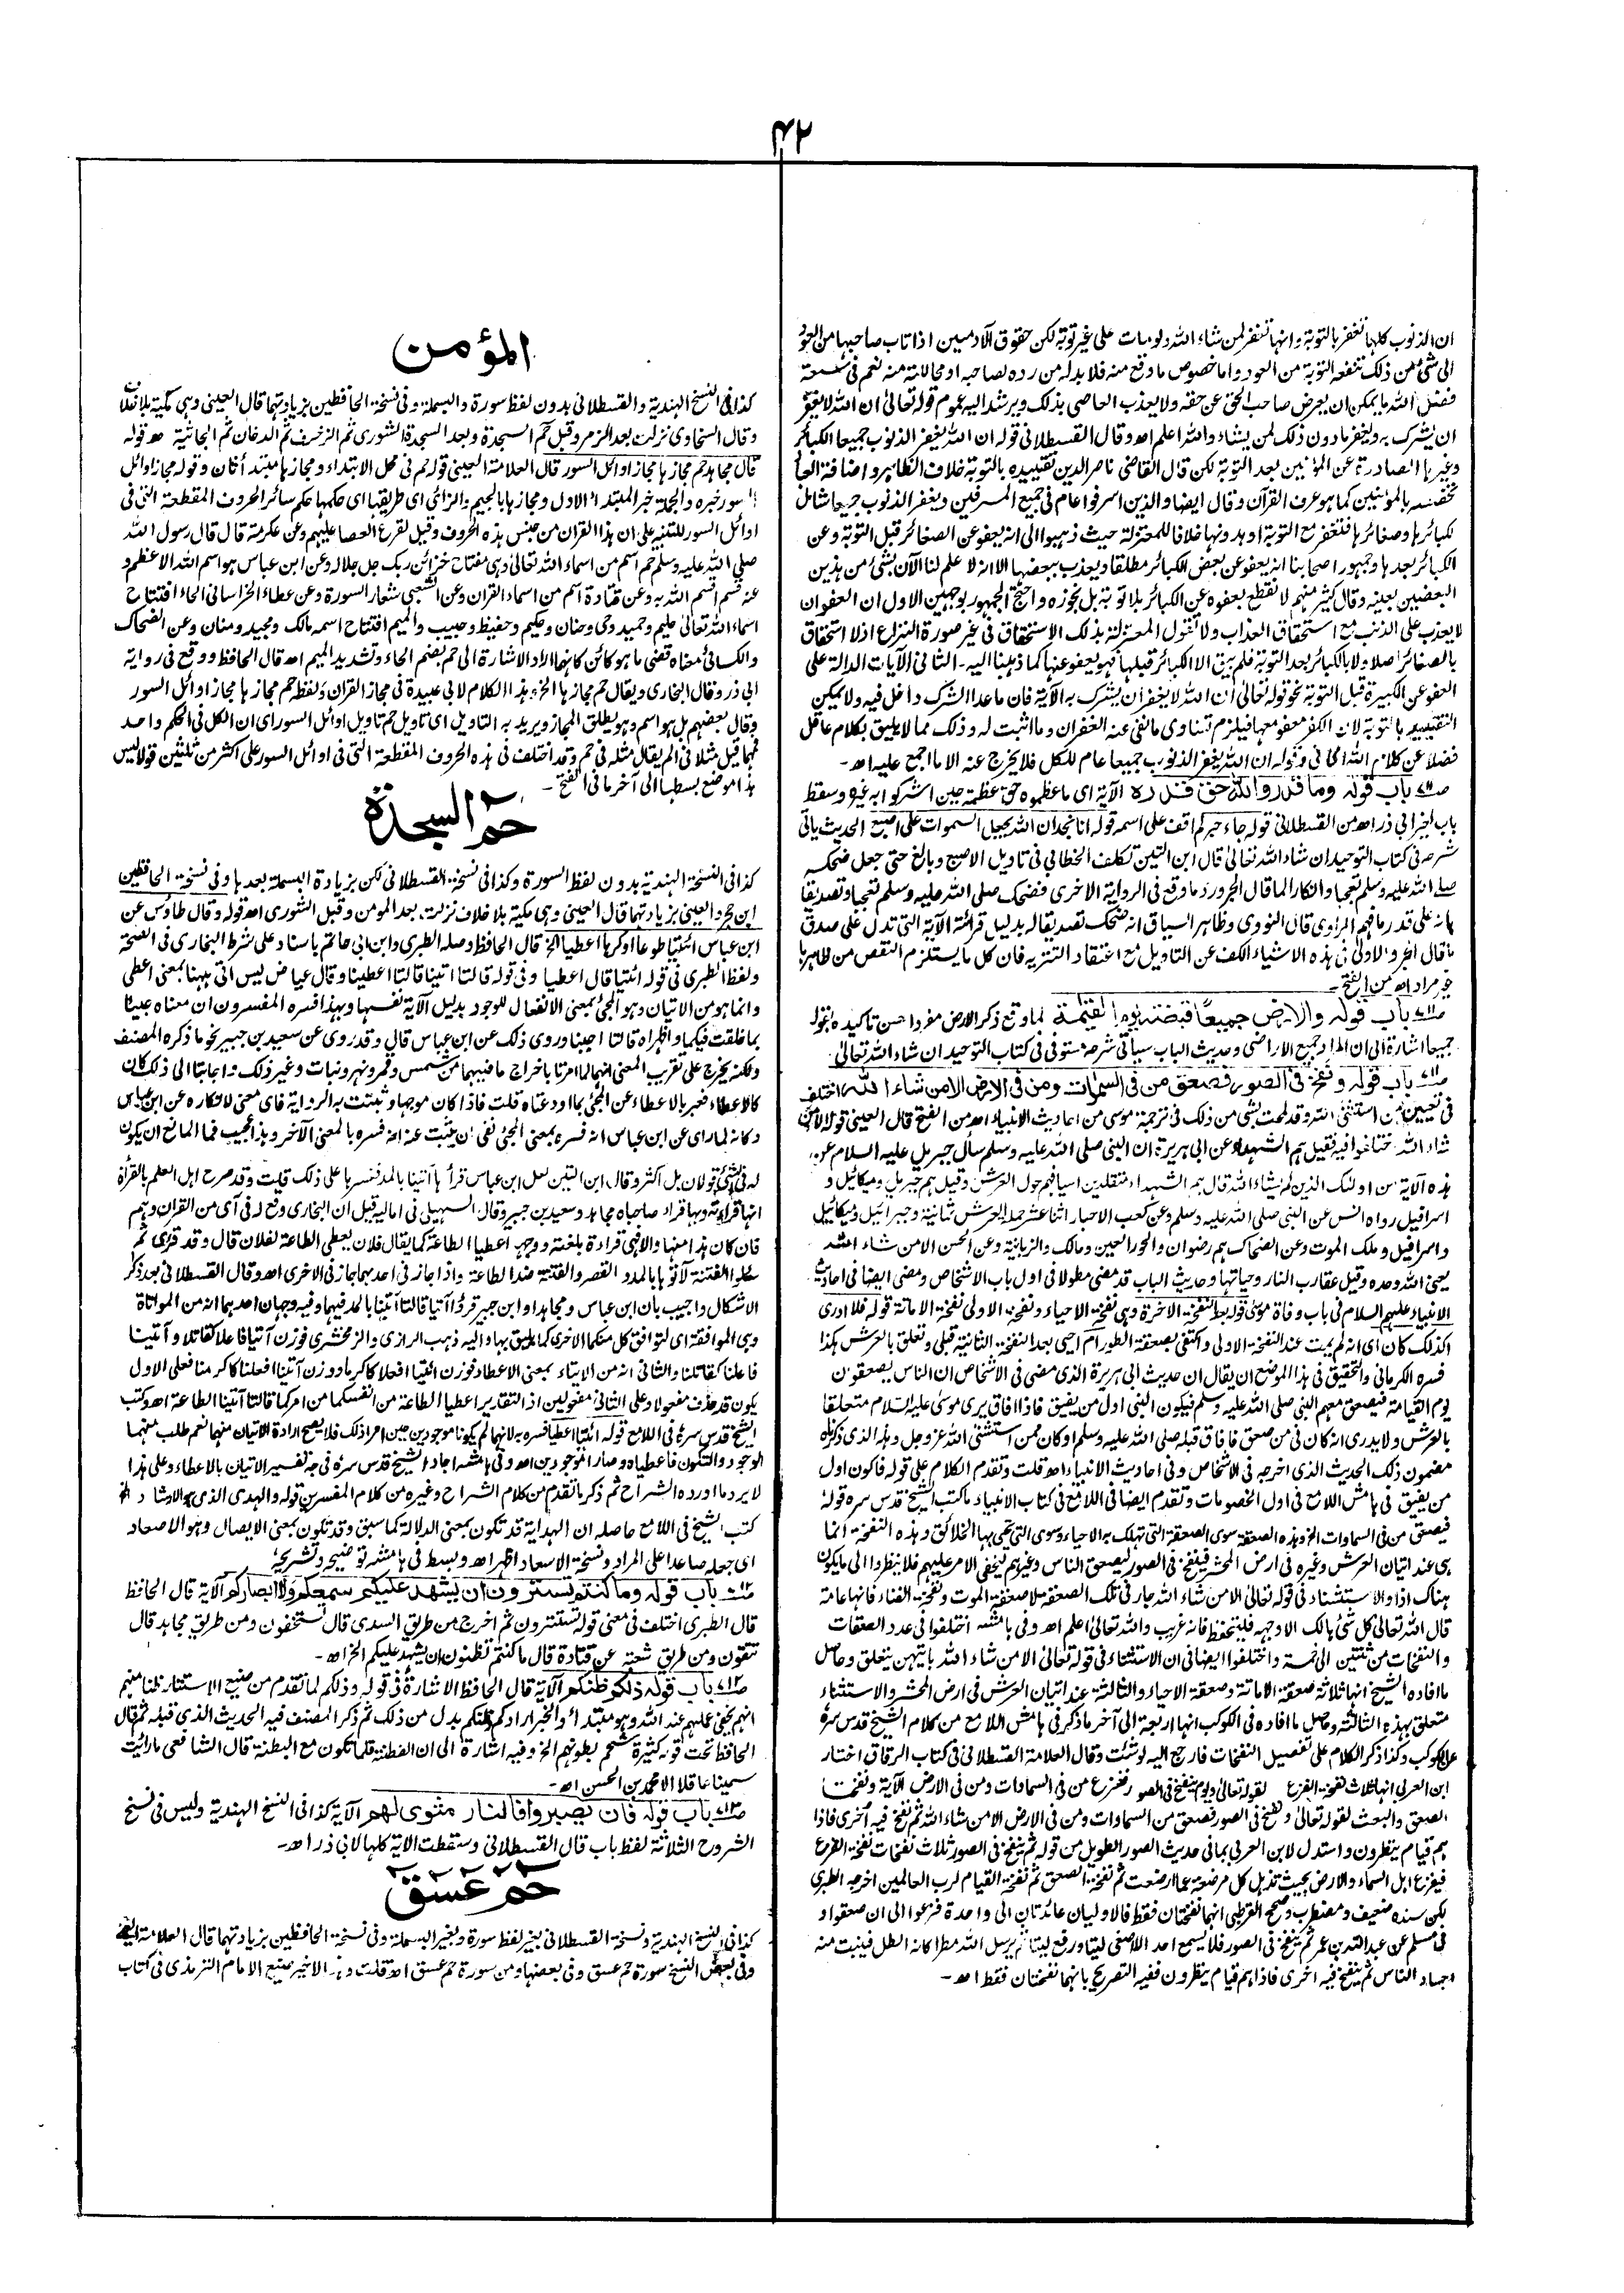 ۴۲
ان الذنوب كلها تغفر بالتوبة وانها تغفر لمن شاء الله ولو مات على غير توبة لكن حقوق الآدميين اذا تاب صاحبها من العود
الى شئ من ذلك تنفعه التوبة من العود واما خصوص ما وقع منه فلا بد له من رده لصاحبه او محاللته منه نعم فى سعة
فضل الله ما يمكن ان يعوض صاحب الحق عن حقه ولا يعذب العاصى بذلك ويرشد اليه عموم قوله تعالى ان الله لا يغفر
ان يشرك به ويغفر ما دون ذلك لمن يشاء والله اعلم اھ وقال القسطلانى قوله ان الله يغفر الذنوب جميعا الكبائر
وغيرها الصادرة عن المؤمنين بعد التوبة لكن قال القاضى ناصر الدين تقييده بالتوبة خلاف الظاهر واضافة العباد
تخصصه بالمؤمنين كما هو عرف القرآن وقال ايضا والذين اسرفوا عام فى جميع المسرفين ويغفر الذنوب جميعا شامل
لكبائرها وصغائرها فتغفر مع التوبة او بدونها خلافا للمعتزلة حيث ذهبوا الى انه يعفو عن الصغائر قبل التوبة وعن
الكبائر بعدها وجمهور اصحابنا انه يعفو عن بعض الكبائر مطلقا ويعذب ببعضها الا انه لا علم لنا الآن بشئ من هذين
البعضين بعينه وقال كثير منهم لا نقطع بعفوه عن الكبائر بلا توبة بل نجوزه واحتج الجمهور بوجهين الاول ان العفو ان
لا يعذب على الذنب مع استحقاق العذاب ولا تقول المعتزلة بذلك الاستحقاق فى غير صورة النزاع اذ لا استحقاق
بالصغائر اصلا ولا بالكبائر بعد التوبة فلم يبق الا الكبائر قبلها فهو يعفو عنها كما ذهبنا اليه۔ الثانى الآيات الدالة على
العفو عن الكبيرة قبل التوبة نحو قوله تعالى ان الله لا يغفر ان يشرك به الآية فان ما عدا الشرك داخل فيه ولا يمكن
التقييد بالتوبة لان الكفر معفو معها فيلزم تساوى ما نفى عنه الغفران وما اثبت له وذلك مما لا يليق بكلام عاقل
فضلا عن كلام الله وقوله ان الله يغفر الذنوب جميعا عام للكل فلا يخرج عنه الا ما اجمع عليه اھ۔
باب قوله وما قدروا الله حق قدره الآية اى ما عظموه حق عظمته حين اشركوا به غيره وسقط
باب لغير ابى ذر اھ من القسطلانى قوله جاء حبر لم اقف على اسمه قوله انا نجد ان الله يجعل السموات على اصبع الحديث ياتى
شرحه فى كتاب التوحيد ان شاء الله تعالى قال ابن التين تكلف الخطابى فى تاويل الاصبع وبالغ حتى جعل ضحكه
صلى الله عليه وسلم تعجبا وانكارا لما قال الحبر ورد ما وقع فى الرواية الاخرى فضحك صلى الله عليه وسلم تعجبا وتصديقا
بانه على قدر ما فهم الراوى قال النووى وظاهر السياق انه ضحك تصديقا له بدليل قراءته الآية التى تدل على صدق
ما قال الحبر والاولى فى هذه الاشياء الكف عن التاويل مع اعتقاد التنزيه فان كل ما يستلزم النقص من ظاهرها
غير مراد اھ من الفتح۔
باب قوله والارض جميعًا قبضته يوم القيٰمة لما وقع ذكر الارض مفردا حسن تاكيده بقوله
جميعا اشارة الى ان المراد جميع الاراضى وحديث الباب سياتى شرحه مستوفى فى كتاب التوحيد ان شاء الله تعالى
باب قوله ونفخ فى الصور فصعق من فى السمٰوات ومن فى الارض الا من شاء الله اختلف
فى تعيين من استثنى الله وقد لمحت بشئ من ذلك فى ترجمة موسى من احاديث الانبياء اھ من الفتح قال العينى قوله الا من
شاء الله اختلفوا فيه فقيل هم الشهداء عن ابى هريرة ان النبى صلى الله عليه وسلم سأل جبريل عليه السلام عن
هذه الآية من اولئك الذين لم يشاء الله قال هم الشهداء متقلدين اسيافهم حول العرش وقيل هم جبريل وميكائيل و
اسرافيل رواه انس عن النبى صلى الله عليه وسلم وعن كعب الاحبار اثنا عشر حملة العرش ثمانية وجبرائيل وميكائيل
واسرافيل وملك الموت وعن الضحاك هم رضوان والحور العين ومالك والزبانية وعن الحسن الا من شاء الله
يعنى الله وحده وقيل عقارب النار وحياتها وحديث الباب قد مضى مطولا فى اول باب الاشخاص ومضى ايضا فى احاديث
الانبياء عليهم السلام فى باب وفاة موسى قوله بعد النفخة الآخرة وهى نفخة الاحياء ونفخة الاولى نفخة الاماتة قوله فلا ادرى
اكذلك كان اى انه لم يمت عند النفخة الاولى واكتفى بصعقة الطور ام احيى بعد النفخة الثانية قبلى وتعلق بالعرش هكذا
فسره الكرمانى والتحقيق فى هذا الموضع ان يقال ان حديث ابى هريرة الذى مضى فى الاشخاص ان الناس يصعقون
يوم القيامة فيصعق معهم النبى صلى الله عليه وسلم فيكون النبى اول من يفيق فاذا افاق يرى موسى عليه السلام متعلقا
بالعرش ولا يدرى انه كان فى من صعق فافاق قبله صلى الله عليه وسلم او كان ممن استثنى الله عز وجل وهذا الذى ذكرناه
مضمون ذلك الحديث الذى اخرجه فى الاشخاص وفى احاديث الانبياء اھ قلت وتقدم الكلام على قوله فاكون اول
من يفيق فى هامش اللامع فى اول الخصومات وتقدم ايضا فى اللامع فى كتاب الانبياء ما كتب الشيخ قدس سره قوله
فيصعق من فى السماوات الخ وهذه الصعقة سوى الصعقة التى تهلك به الاحياء وسوى التى تحيى بها الخلائق وهذه النفخة انما
هى عند اتيان العرش وغيره فى ارض المحشر فينفخ فى الصور ليصعق الناس وغيرهم ليخفى الامر عليهم فلا ينظروا الى ما يكون
هناك اذا والاستثناء فى قوله تعالى الا من شاء الله جار فى تلك الصعقة لا صعقة الموت ونفخة الفناء فانها عامة
قال الله تعالى كل شئ هالك الا وجهه فليتحفظ فانه غريب والله تعالى اعلم اھ وفى هامشه اختلفوا فى عدد الصعقات
والنفخات من ثنتين الى خمسة واختلفوا ايضا فى ان الاستثناء فى قوله تعالى الا من شاء الله بايتهن يتعلق وحاصل
ما افاده الشيخ انها ثلاثة صعقة الاماتة وصعقة الاحياء والثالثة عند اتيان العرش فى ارض المحشر والاستثناء
متعلق بهذه الثالثة وحاصل ما افاده فى الكوكب انها اربعة الى آخر ما ذكر فى هامش اللامع من كلام الشيخ قدس سره
عن الكوكب وكذا ذكر الكلام على تفصيل النفخات فارجع اليه لو شئت وقال العلامة القسطلانى فى كتاب الرقاق اختار
ابن العربى انها ثلاث نفخة الفزع لقوله تعالى ويوم ينفخ فى الصور ففزع من فى السماوات ومن فى الارض الآية ونفخة
الصعق والبعث لقوله تعالى ونفخ فى الصور فصعق من السماوات ومن فى الارض الا من شاء الله ثم نفخ فيه اخرى فاذا
هم قيام ينظرون واستدل لابن العربى بما فى حديث الصور الطويل من قوله ثم ينفخ فى الصور ثلاث نفخات نفخة الفزع
فيفزع اهل السماء والارض بحيث تذهل كل مرضعة عما ارضعت ثم نفخة الصعق ثم نفخة القيام لرب العالمين اخرجه الطبرى
لكن سنده ضعيف ومضطرب وصحح القرطبى انهما نفختان فقط فالاوليان عائدتان الى واحدة فزعوا الى ان صعقوا و
فى مسلم عن عبد الله بن عمر ثم ينفخ فى الصور فلا يسمع احد الا اصغى ليتا ورفع ليتا ثم يرسل الله مطرا كانه الطل فينبت منه
اجساد الناس ثم ينفخ فيه اخرى فاذا هم قيام ينظرون ففيه التصريح بانهما نفختان فقط اھ۔
المؤمن
كذا فى النسخ الهندية والقسطلانى بدون لفظ سورة والبسملة وفى نسخة الحافظين بزيادتهما قال العينى وهى مكية بلا خلاف
وقال السخاوى نزلت بعد الزمر وقبل حم السجدة وبعد السجدة الشورى ثم الزخرف ثم الدخان ثم الجاثية اھ قوله
قال مجاهد حم مجازها مجاز اوائل السور قال العلامة العينى قوله حم فى محل الابتداء ومجازها مبتدأ ثان وقوله مجاز اوائل
السور خبره والجملة خبر المبتدا الاول ومجازها بالجيم والزائى اى طريقها اى حكمها حكم سائر الحروف المقطعة التى فى
اوائل السور للتنبيه على ان هذا القران من جنس هذه الحروف وقيل لقرع العصا عليهم وعن عكرمة قال قال رسول الله
صلى الله عليه وسلم حم اسم من اسماء الله تعالى وهى مفتاح خزائن ربك جل جلاله وعن ابن عباس هو اسم الله الاعظم و
عنه قسم اقسم الله به وعن قتادة اسم من اسماء القران وعن الشعبى شعار السورة وعن عطاء الخراسانى الحاء افتتاح
اسماء الله تعالى حليم وحميد وحى وحنان وحكيم وحفيظ وحبيب والميم افتتاح اسمه مالك ومجيد ومنان وعن الضحاك
والكسائى معناه قضى ما هو كائن كانهما ارادا الاشارة الى حم بضم الحاء وتشديد الميم اھ قال الحافظ ووقع فى رواية
ابى ذر وقال البخارى ويقال حم مجازها الخ وهذا الكلام لابى عبيدة فى مجاز القران ولفظه حم مجازها مجاز اوائل السور
وقال بعضهم بل هو اسم وهو يطلق المجاز ويريد به التاويل اى تاويل حم تاويل اوائل السور اى ان الكل فى الحكم واحد
فمهما قيل مثلا فى الم يقال مثله فى حم وقد اختلف فى هذه الحروف المقطعة التى فى اوائل السور على اكثر من ثلثين قولا ليس
هذا موضع بسطها الى آخر ما فى الفتح۔
حٰمٓ السجدة
كذا فى النسخة الهندية بدون لفظ السورة وكذا فى نسخة القسطلانى لكن بزيادة البسملة بعدها وفى نسخة الحافظين
ابن حجر والعينى بزيادتهما قال العينى وهى مكية بلا خلاف نزلت بعد المومن وقبل الشورى اھ قوله وقال طاؤس عن
ابن عباس ائتيا طوعا او كرها اعطيا الخ قال الحافظ وصله الطبرى وابن ابى حاتم باسناد على شرط البخارى فى الصحة
ولفظ الطبرى فى قوله ائتيا قال اعطيا وفى قوله قالتا اتينا قالتا اعطينا وقال عياض ليس اتى ههنا بمعنى اعطى
وانما هو من الاتيان وهو المجئ بمعنى الانفعال للوجود بدليل الآية نفسها وبهذا فسره المفسرون ان معناه جيئا
بما خلقت فيكما واظهراه قالتا اجبنا وروى ذلك عن ابن عباس قال وقد روى عن سعيد بن جبير نحو ما ذكره المصنف
ولكنه يخرج على تقريب المعنى انهما لما امرتا باخراج ما فيهما من شمس وقمر ونهر ونبات وغير ذلك واجابتا الى ذلك كان
كالاعطاء فعبر بالاعطاء عن المجئ بما اودعتاه قلت فاذا كان موجها وثبتت به الرواية فاى معنى لانكاره عن ابن عباس
وكانه لما راى عن ابن عباس انه فسره بمعنى المجئ نفى ان يثبت عنه انه فسره بالمعنى الآخر وهذا عجيب فما المانع ان يكون
له فى الشئ قولان بل اكثر وقال ابن التين لعل ابن عباس قرأها آتينا بالمد ففسرها على ذلك قلت وقد صرح اهل العلم بالقرأة
انها قراءته وبها قرأ صاحباه مجاهد وسعيد بن جبير وقال السهيلى فى اماليه قيل ان البخارى وقع له فى آى من القران وهم
فان كان هذا منها والا فهى قراءة بلغته ووجهه اعطيا الطاعة كما يقال فلان يعطى الطاعة لفلان قال وقد قرئ ثم
سئلوا الفتنة لآتوها بالمد والقصر والفتنة ضد الطاعة واذا جاز فى احدهما جاز فى الاخرى اھ وقال القسطلانى بعد ذكر
الاشكال واجيب بان ابن عباس ومجاهدا وابن جبير قرؤا آتيا قالتا آتينا بالمد فيهما وفيه وجهان احدهما انه من المواتاة
وهى الموافقة اى لتوافق كل منكما الاخرى كما يليق بها واليه ذهب الرازى والزمخشرى فوزن آتيا فاعلا كقاتلا وآتينا
فاعلنا كقاتلنا والثانى انه من الايتاء بمعنى الاعطاء فوزن ائتيا افعلا كاكرما ووزن آتينا افعلنا كاكرمنا فعلى الاول
يكون قد حذف مفعولا وعلى الثانى مفعولين اذ التقدير اعطيا الطاعة من انفسكما من امركما قالتا آتينا الطاعة اھ وكتب
الشيخ قدس سره فى اللامع قوله ائتيا اعطيا فسره به لانهما لم يكونا موجودين حين امرا ذلك فلا يصح ارادة الاتيان منهما نعم طلب منهما
الوجود والتكون فاعطياه وصارا موجودين اھ وفى هامشه اجاد الشيخ قدس سره فى توجيه تفسير الاتيان بالاعطاء وعلى هذا
لا يرد ما اورده الشراح ثم ذكر ما تقدم من كلام الشراح وغيره من كلام المفسرين قوله والهدى الذى هو الارشاد الخ
كتب الشيخ فى اللامع حاصله ان الهداية قد تكون بمعنى الدلالة كما سبق وقد تكون بمعنى الايصال وهو الاصعاد
اى جعله صاعدا على المراد ونسخة الاسعاد اظهر اھ وبسط فى هامشه توضيحه وتشريحه
باب قوله وما كنتم تستترون ان يشهد عليكم سمعكم ولا ابصاركم الآية قال الحافظ
قال الطبرى اختلف فى معنى قوله تستترون ثم اخرج من طريق السدى قال تستخفون ومن طريق مجاهد قال
تتقون ومن طريق شعبة عن قتادة قال ما كنتم تظنون ان يشهد عليكم الخ اھ۔
باب قوله ذلكم ظنكم الآية قال الحافظ الاشارة فى قوله وذلكم لما تقدم من صنيع الاستتار ظنا منهم
انهم يخفى عملهم عند الله وهو مبتدأ والخبر ارداكم وظنكم بدل من ذلك ثم ذكر المصنف فيه الحديث الذى قبله ثم قال
الحافظ تحت قوله كثيرة شحم بطونهم الخ وفيه اشارة الى ان الفطنة قلما تكون مع البطنة قال الشافعى ما رائيت
سمينا عاقلا الا محمد بن الحسن اھ۔
باب قوله فان يصبروا فالنار مثوى لهم الآية كذا فى النسخ الهندية وليس فى نسخ
الشروح الثلاثة لفظ باب قال القسطلانى وسقطت الآية كلها لابى ذر اھ۔
حٰمٓ عٓسٓقٓ
كذا فى النسخ الهندية ونسخة القسطلانى بغير لفظ سورة وبغير البسملة وفى نسخة الحافظين بزيادتهما قال العلامة العينى
وفى بعض النسخ سورة حم عسق وفى بعضها ومن سورة حم عسق اھ قلت وهذا الاخير صنيع الامام الترمذى فى كتاب